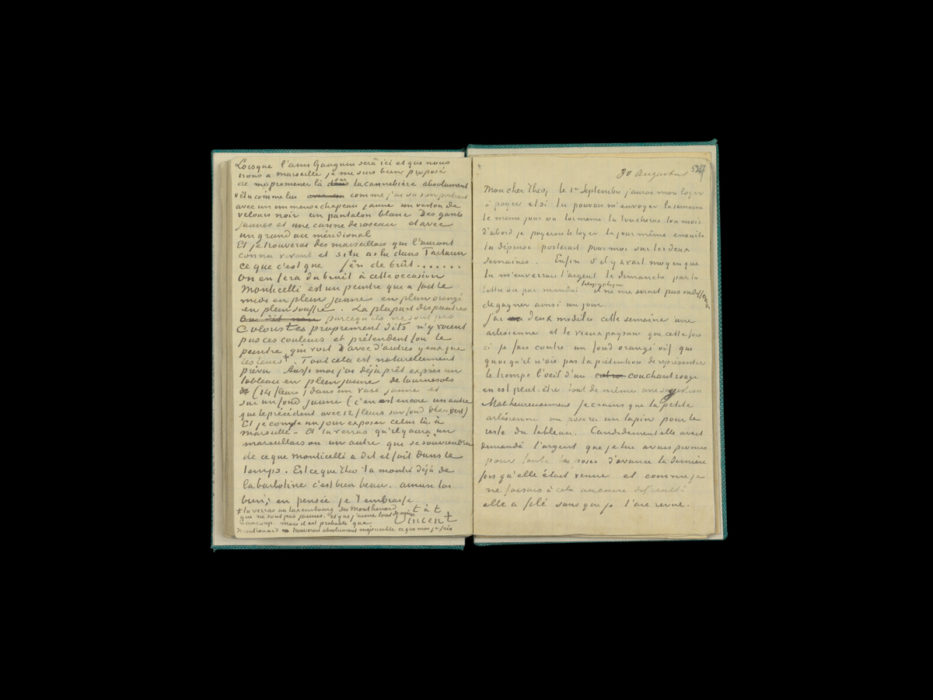 Lorsque l'ami Gauguin sera ici et que nous
irons a marseille je me suis bien proposé
de me promener là dans la cannebière absolument
vêtu comme lui comme j'ai vu son portrait
avec un immense chapeau jaune un veston de
velours noir un pantalon blanc des gants
jaunes et une canne de roseau et avec
un grand air méridional
Et je trouverai des marseillais qui l'auront
connu vivant et si tu as lu dans Tartarin
ce que c'est que fen de brût.......
on en fera du bruit à cette occasion
Monticelli est un peintre qui a fait le
midi en plein jaune en plein orangé
en plein souffre. La plupart des peintres
parce qu'ils ne sont pas
coloristes proprement dits n'y voient
pas ces couleurs et prétendent fou le
peintre qui voit d'avec d'autres yeux que
les leurs +. Tout cela est naturellement
prévu. Aussi moi j'ai déjà prêt exprès un
tableau en plein jaune de tournesols
(14 fleurs) dans un vase jaune et
sur un fond jaune (c'en est encore un autre
que le précédent avec 12 fleurs sur fond bleu vert)
Et je compte un jour exposer celui là à
Marseille. Et tu verras qu'il y aura un
marseillais ou un autre qui se souviendra
de ce que Monticelli a dit et fait dans le
temps. Est ce que Theo t'a montré déjà de
la barbotine c'est bien beau.
bien, en pensée je t'embrasse
+ tu verras au luxembourg des Montenard t. à t.
que ne sont pas jaunes. et que j'aime tout de même Vincent
beaucoup mais il est probable que
Montenard trouverait absolument
30 Augustus
Mon cher Theo, le 1er Septembre j'aurai mon loyer
à payer et si tu pouvais m'envoyer la semaine
le même jour où toi même tu toucheras ton mois
d'abord je payerais le loyer le jour même ensuite
la dépense porterait pour moi sur les deux
semaines. Enfin s'il y avait moyen que
tu m'enverras l'argent le dimanche par la
télégraphique
lettre ou par mandat il ne me serait pas indifft
de gagner ainsi un jour.
J'ai deux modèles cette semaine une
arlésienne et le vieux paysan que cette fois
ci je fais contre un fond orangé vif qui
quoi qu'il n'aie pas la prétention de représenter
le trompe l'oeil d'un couchant rouge
en est peut être tout de même une suggestion
Malheureusement je crains que la petite
arlésienne me posera un lapin pour le
reste du tableau. Candidement elle avait
demandé l'argent que je lui avais promis
pour toutes les poses d'avance la dernière
fois qu'elle était venue et comme je
ne faisais à cela aucune difficulté
elle a filé sans que je l'aie revue.